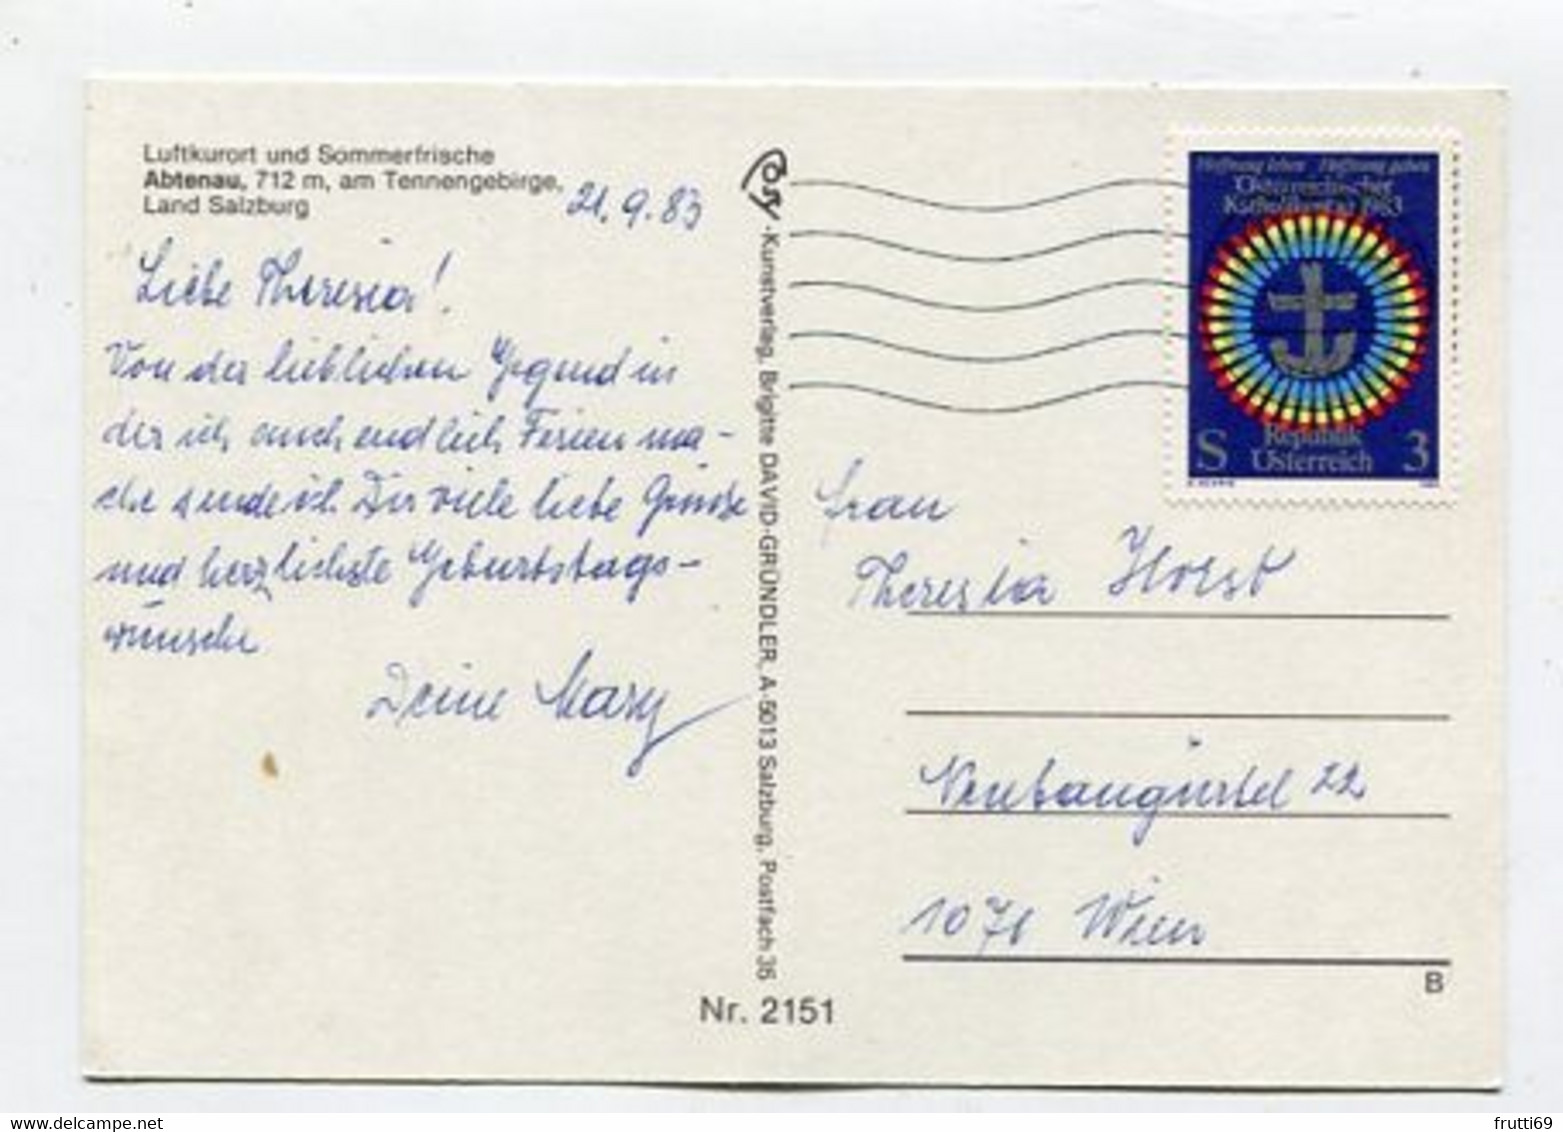 Luftkurort und Sommerfrische
Abtenau, 712 m, am Tennengebirge,
Land Salzburg
21.9.83
Liebe Theresia!
Von der lieblichen Gegend in
der ich auch endlich Ferien ma-
che sende ich Dir viele liebe Grüsse
und herzlichste Geburtstags-
wünsche
Deine Mary
Cosy-Kunstverlag, Brigitte DAVID-GRÜNDLER, A-5013 Salzburg, Postfach 36
Nr. 2151
Hoffnung leben Hoffnung geben
Österreichischer
Katholikentag 1983
Republik
S Österreich 3
Frau
Theresia Horst
Neubaugürtel 22
1070 Wien
B
frutti69